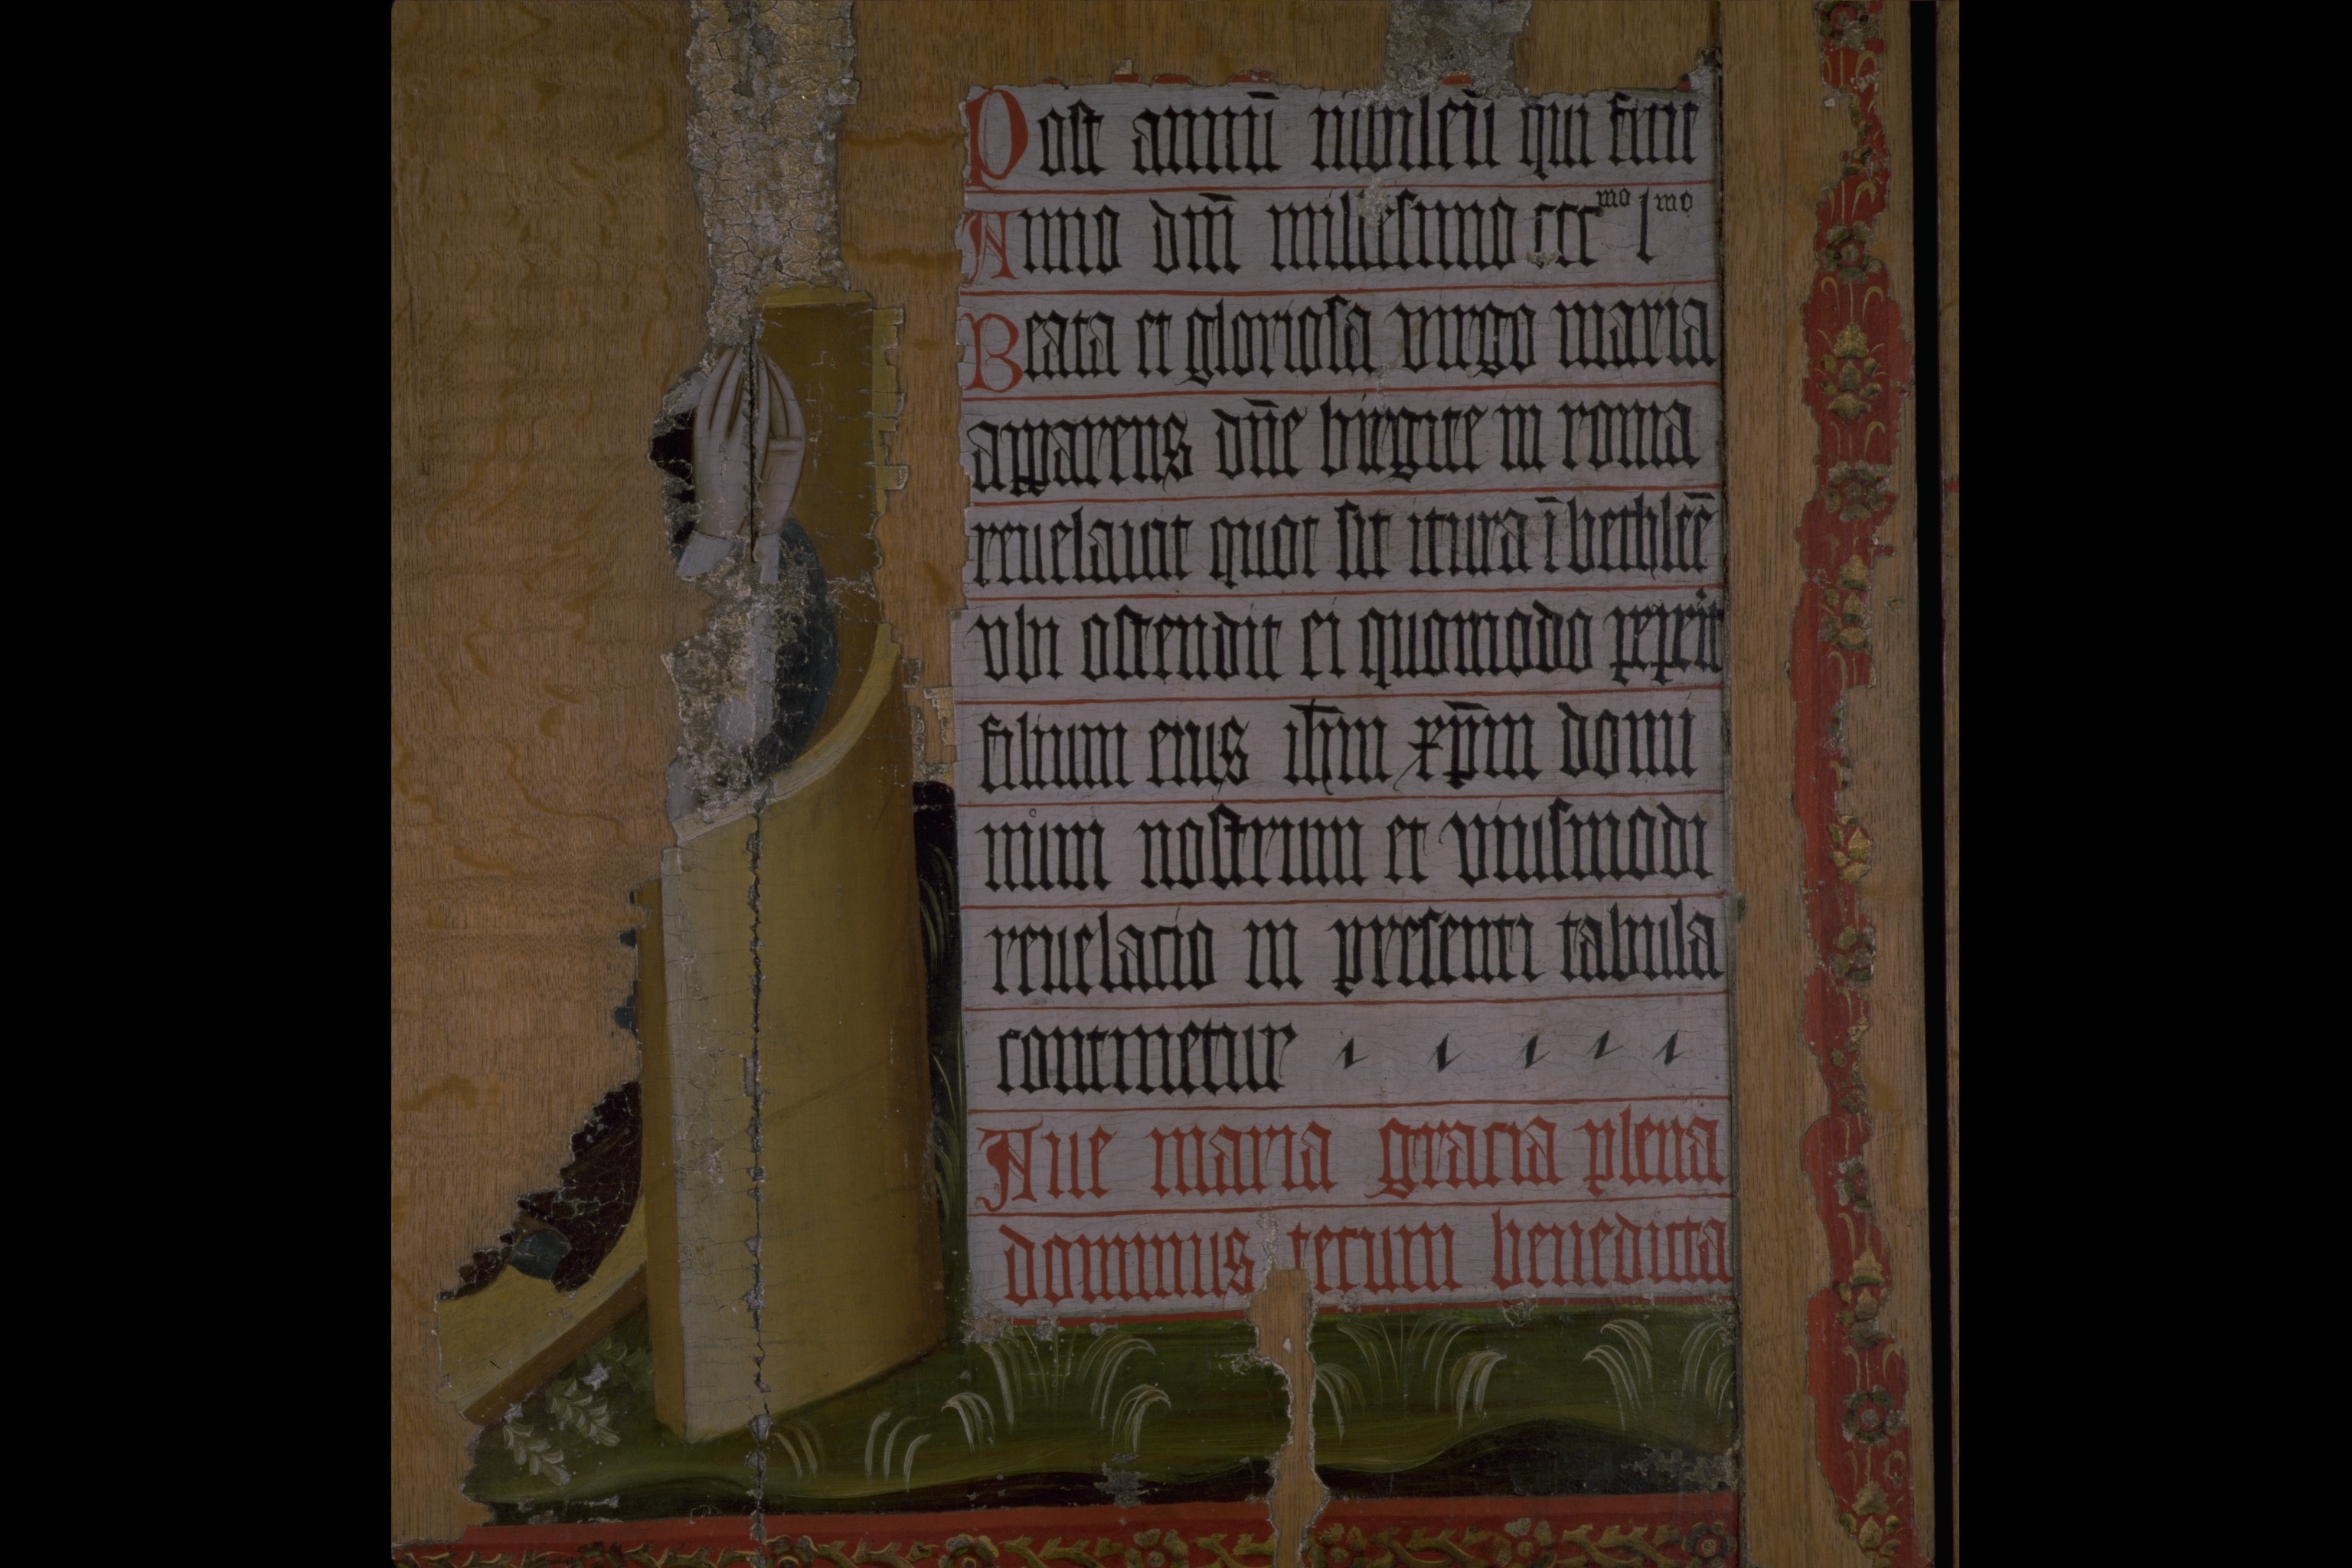 Post annu̅ iubileu̅ qui fuit
Anno dm̅ millesimo ccc^mo l^mo
Beata et gloriosa virgo maria
apparens dn̅e birgite in roma
reuelauit quot sit itura i̅ bethlee̅
vbi ostendit ei quomodo peperit
filium eius ih̅m xp̅m domi
num nostrum et viusmodi
reuelacio in presenti tabula
continetur
Aue maria gracia plena
dominus tecum benedicta